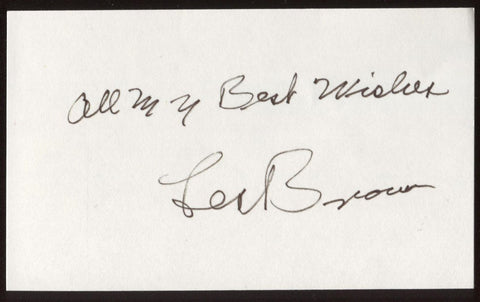 All My Best Wishes
Les Brown